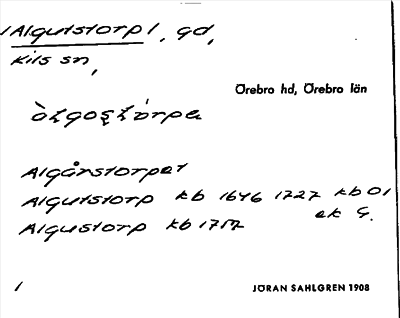 Algutstorp 1, gd,
Kils sn,
Örebro hd, Örebro län
Algårstorpet
Algutstorp kb 1646 1727 kb 01
ek G.
Algustorp kb 1757
1
JÖRAN SAHLGREN 1908